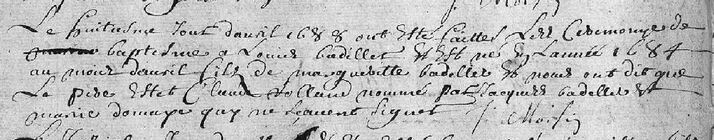 Le huitiesme Jour davril 1688 ont esté faittes Les Ceremonye de
baptesme a Louis badillet Est né En Lannée 1684
au mois davril fils de marqueritte badillet Et nous ont dit que
Le pere estet Claude Rolland nommé par Jacques badillet Et
marie domage quy ne scavent signer